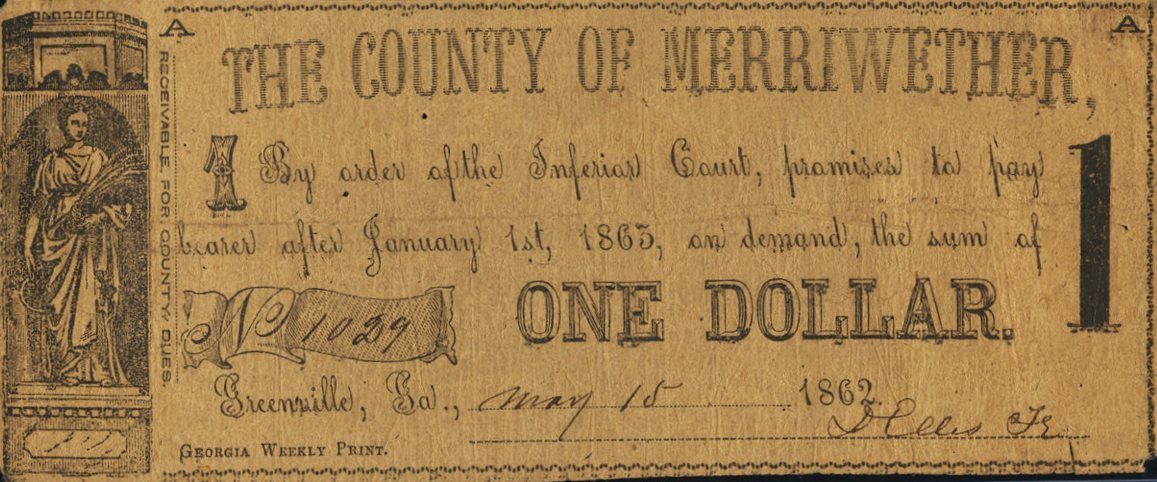 A
A
RECEIVABLE FOR COUNTY DUES.
THE COUNTY OF MERRIWETHER,
1 By order of the Inferior Court, promises to pay 1
bearer after January 1st, 1863, on demand, the sum of
No 1029 ONE DOLLAR.
Greenville, Ga., May 15 1862.
D Ellis Tr
GEORGIA WEEKLY PRINT.